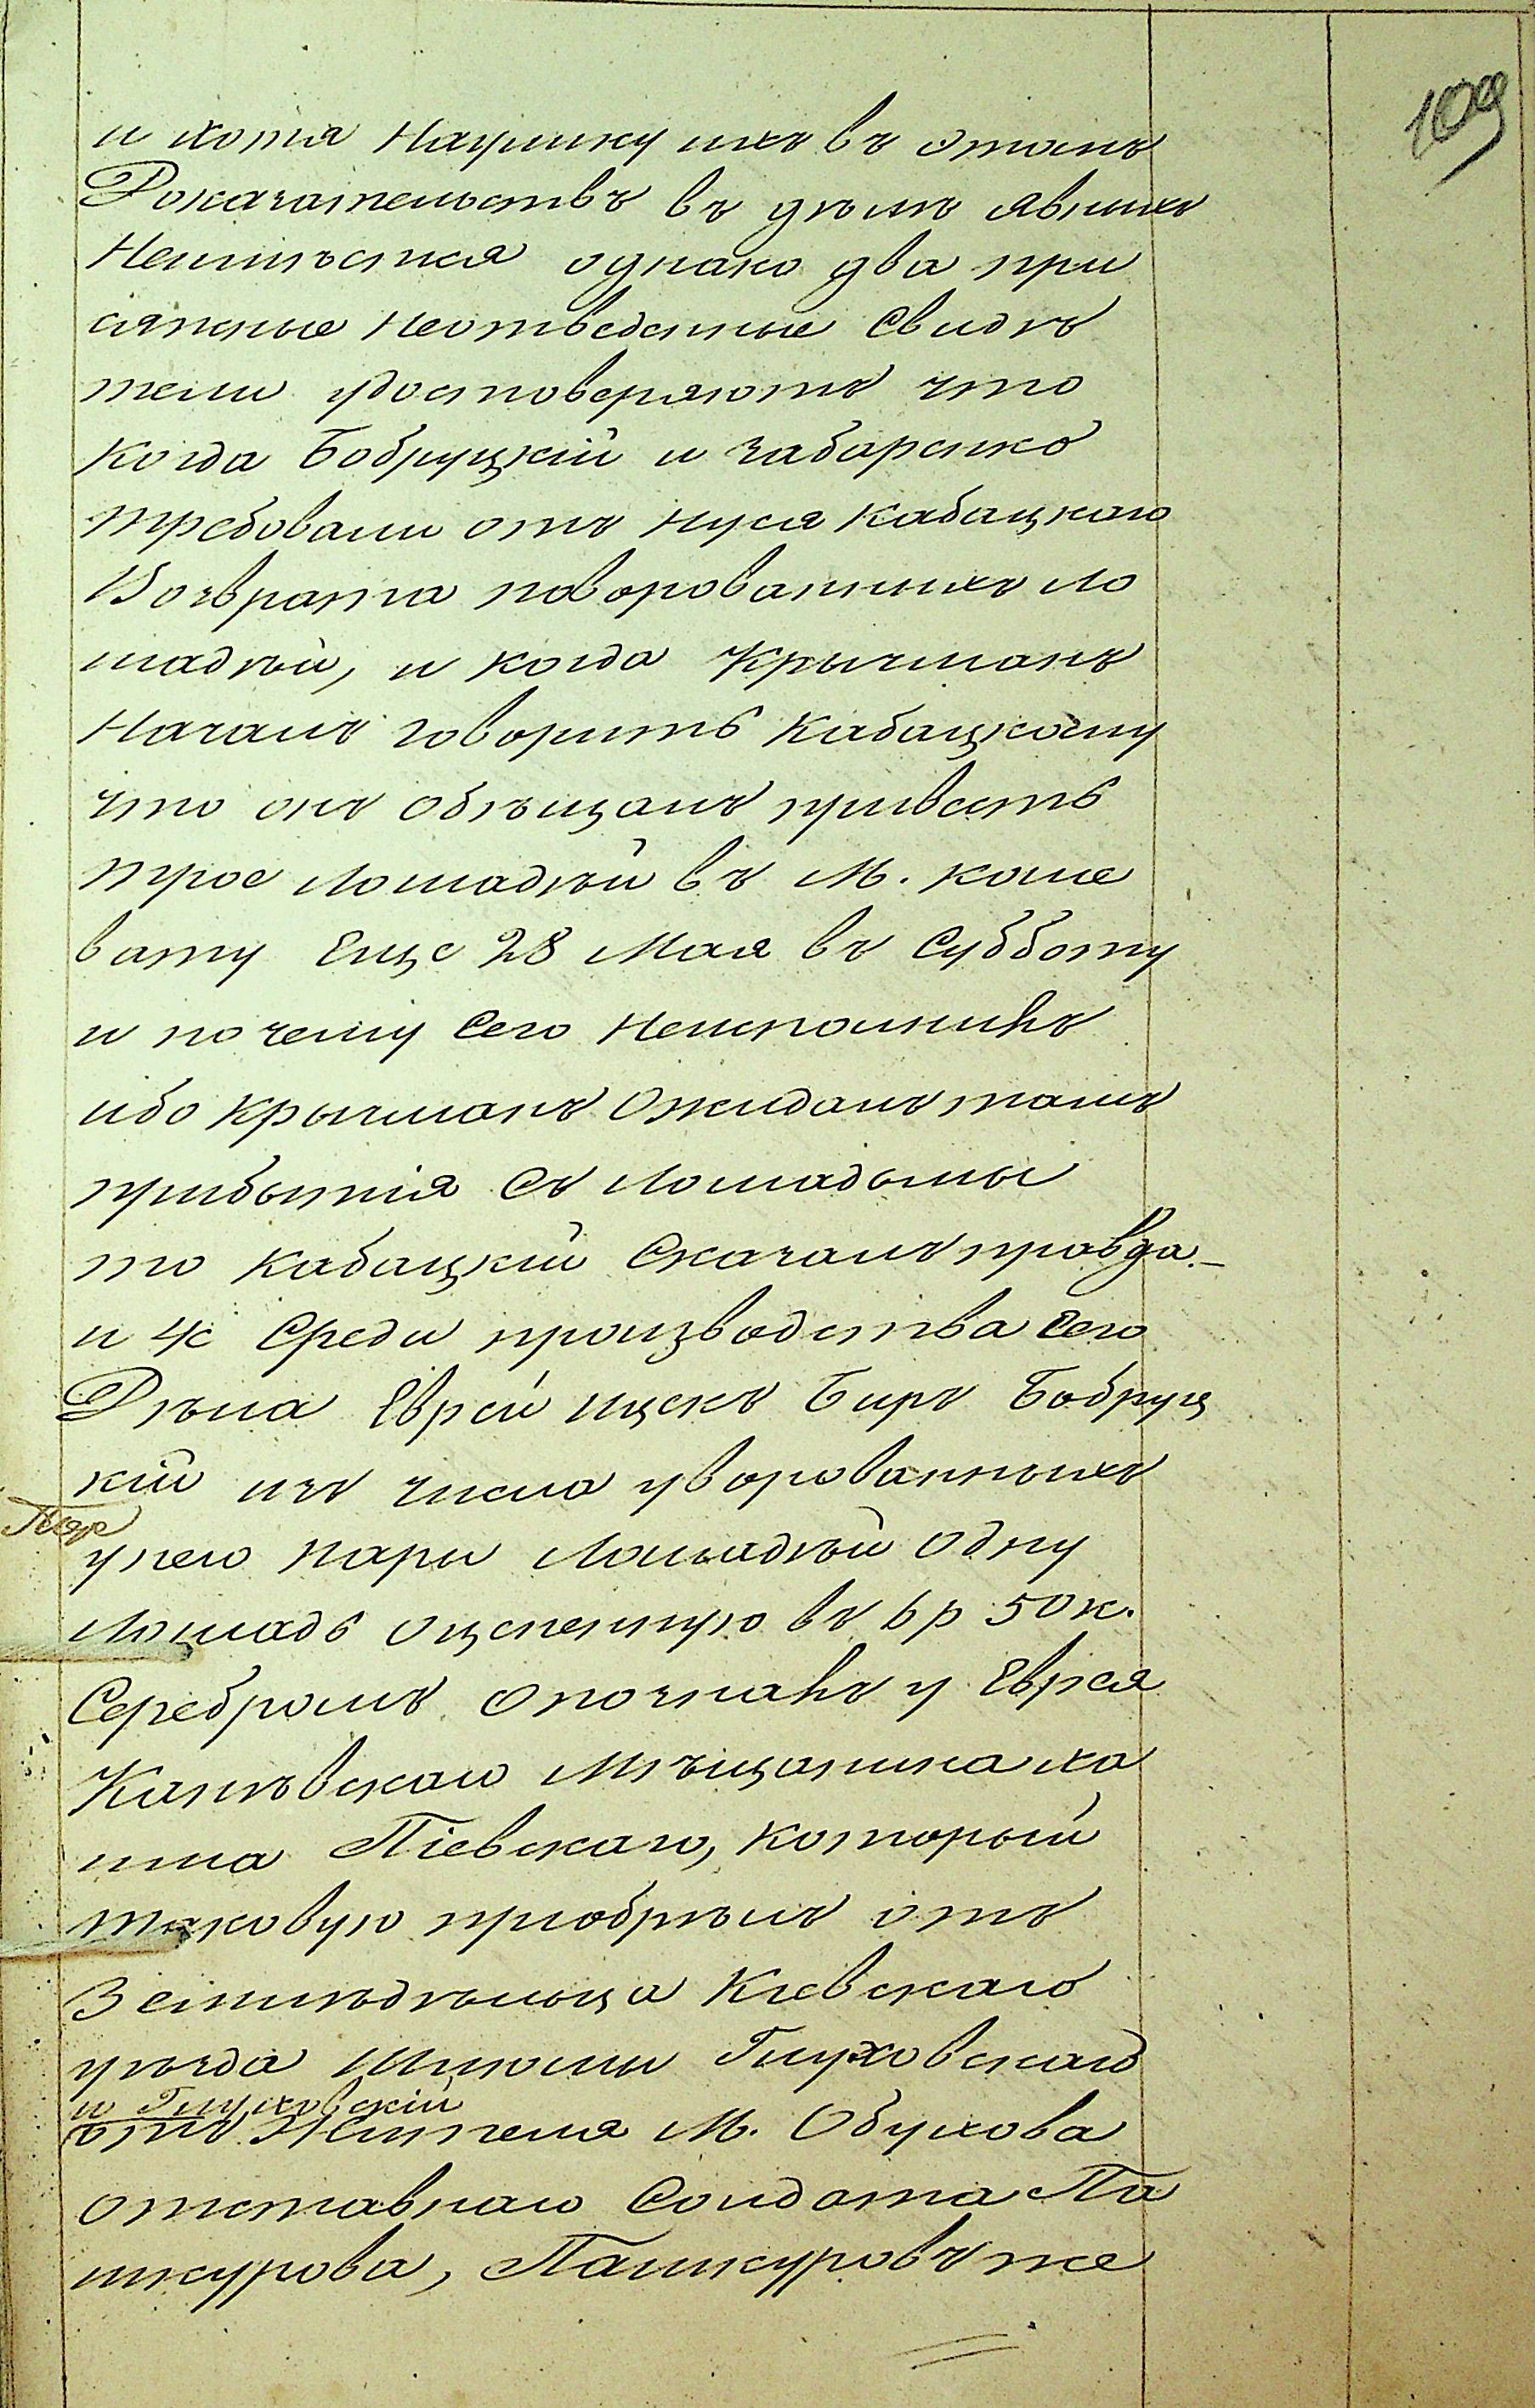 109
и хотя Наулику ихъ въ этомъ
Доказательствъ въ дѣлѣ явныхъ
Неимѣется однако два при
сяжные Неотведенные Свидѣ
тели удостоверяютъ что
когда Бобруцкій и Чабаренко
требовали отъ Нуся Кабацкаго
Возврата поворованныхъ Ло
шадѣй, и когда Крычманъ
Началъ говорить Кабацкому
что онъ обѣщалъ привесть
трое Лошадѣй въ М. коше
вату Еще 28 Мая въ Субботу
и почему Сего Неисполнилъ
ибо Крычманъ Ожидалъ тамъ
прибытія Съ Лошадьмы
то Кабацкій Сказалъ правда.—
и 4е Среди производства Сего
Дѣла Еврей Ицекъ Беръ Бобруц
кій изъ числа уворованныхъ
унего пары Лошадѣй Одну
Лошадь Оцененную въ 6 р 50 к.
Серебромъ Опозналъ у Еврея
Каневскаго Мѣщанина ха
има Піевскаго, который
таковую приобрѣлъ отъ
Земледѣльца Кіевскаго
уѣзда Шлемы Глуховскаго
и Глуховскій
отъ Жителя М. Обухова
отставнаго Солдата Па
шкурова, Пашкуровъ же